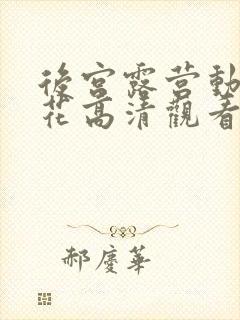 後宮露营動
花高清觀看
郝慶華